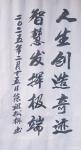 人生创造奇迹
智慧发挥极端
二〇二五年二月十五日陈祖松书